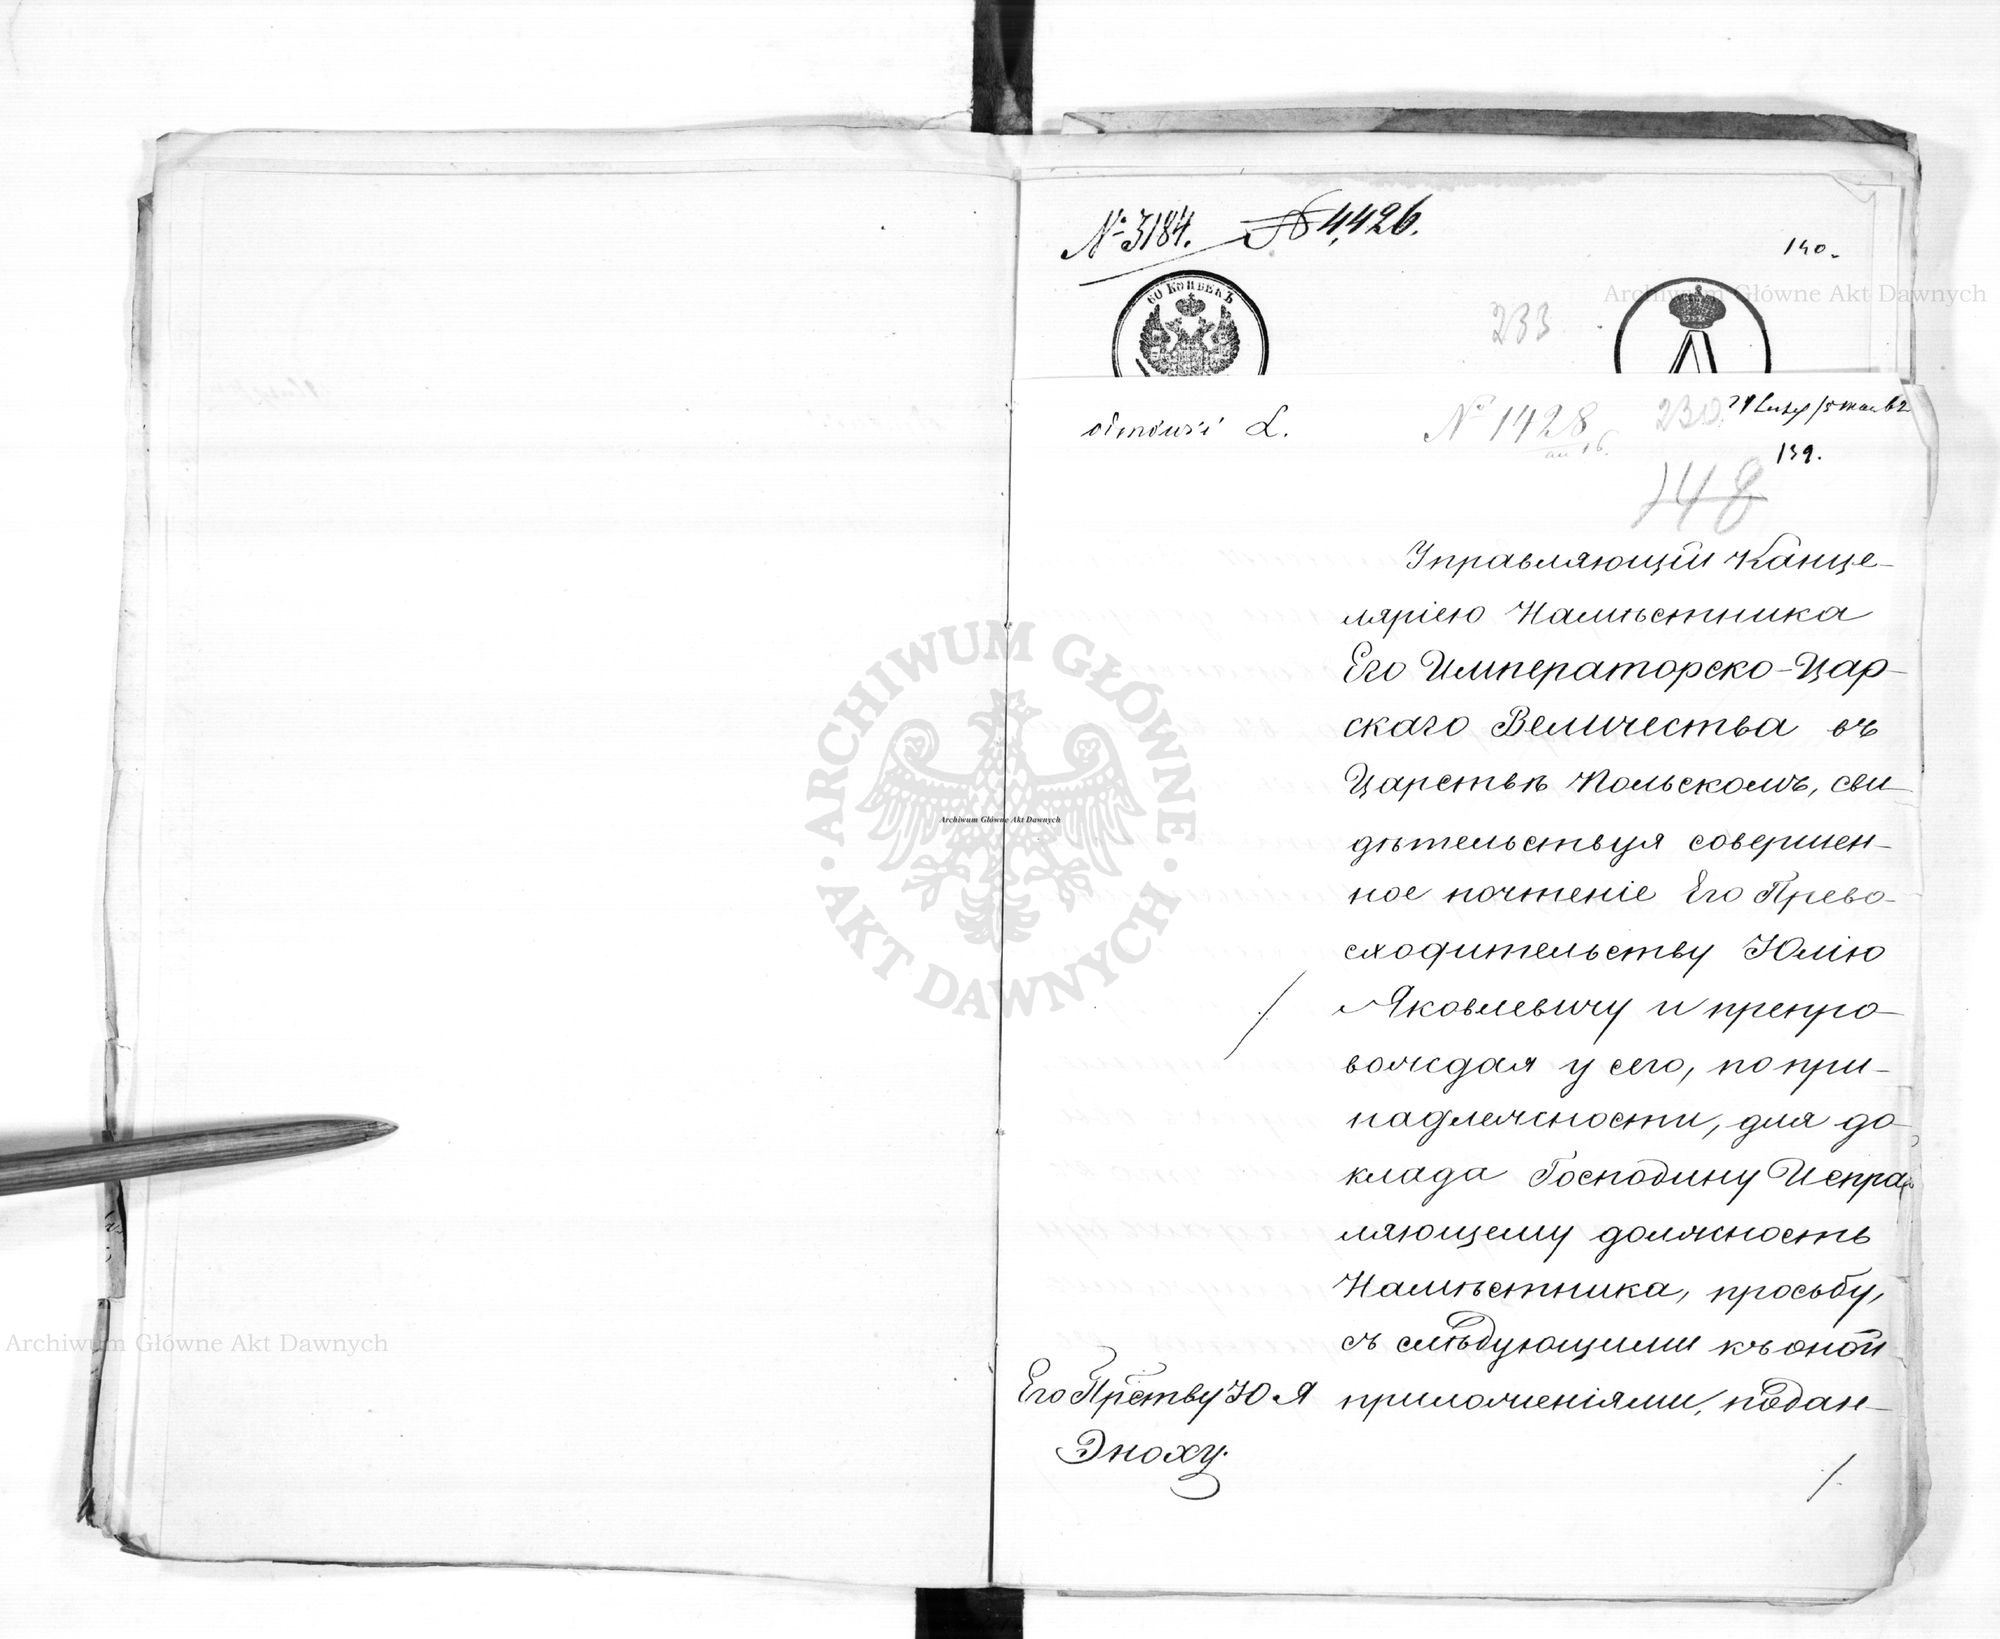 № 3184. № 4,426.
140.
60 КОПѢЕКЪ
233
№ 1428 230
139.
148
Управляющій Канце-
ляріею Намѣстника
Его Императорско-Цар-
скаго Величества въ
Царствѣ Польскомъ, сви-
дѣтельствуя совершен-
ное почтеніе Его Прево-
сходительству Юлію
Яковлевичу и препро-
вождая у сего, по при-
надлежности, для до-
клада Господину Исправ-
ляющему должность
Намѣстника, просьбу,
съ слѣдующими къ оной
приложеніями, подан-
Его Прству Ю Я
Эноху.
ARCHIWUM GŁÓWNE
AKT DAWNYCH
Archiwum Główne Akt Dawnych
Archiwum Główne Akt Dawnych
Archiwum Główne Akt Dawnych